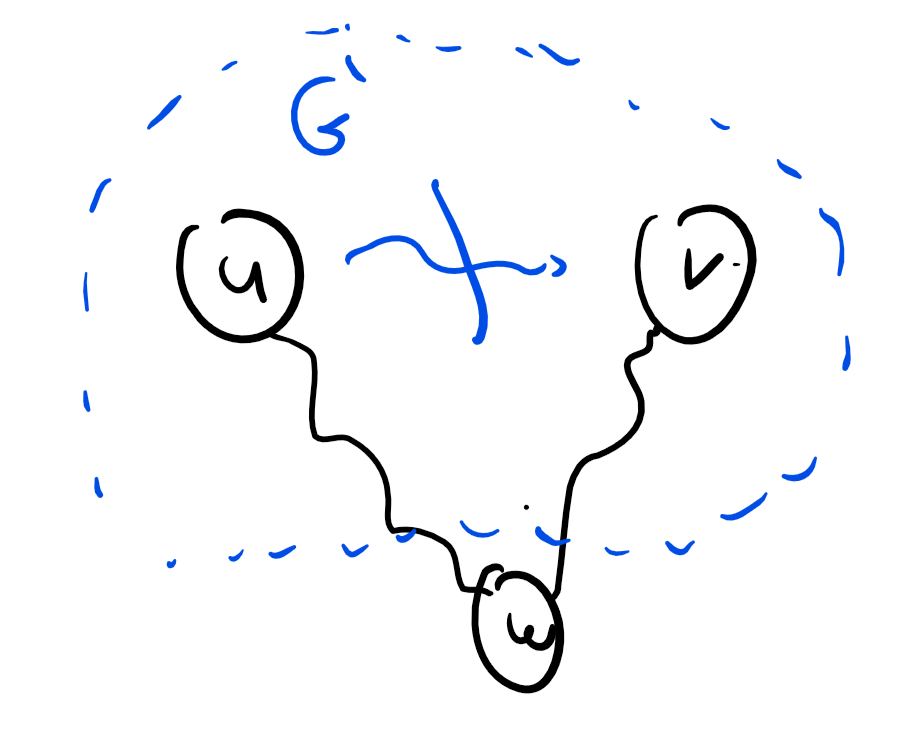 G'
u
v
w